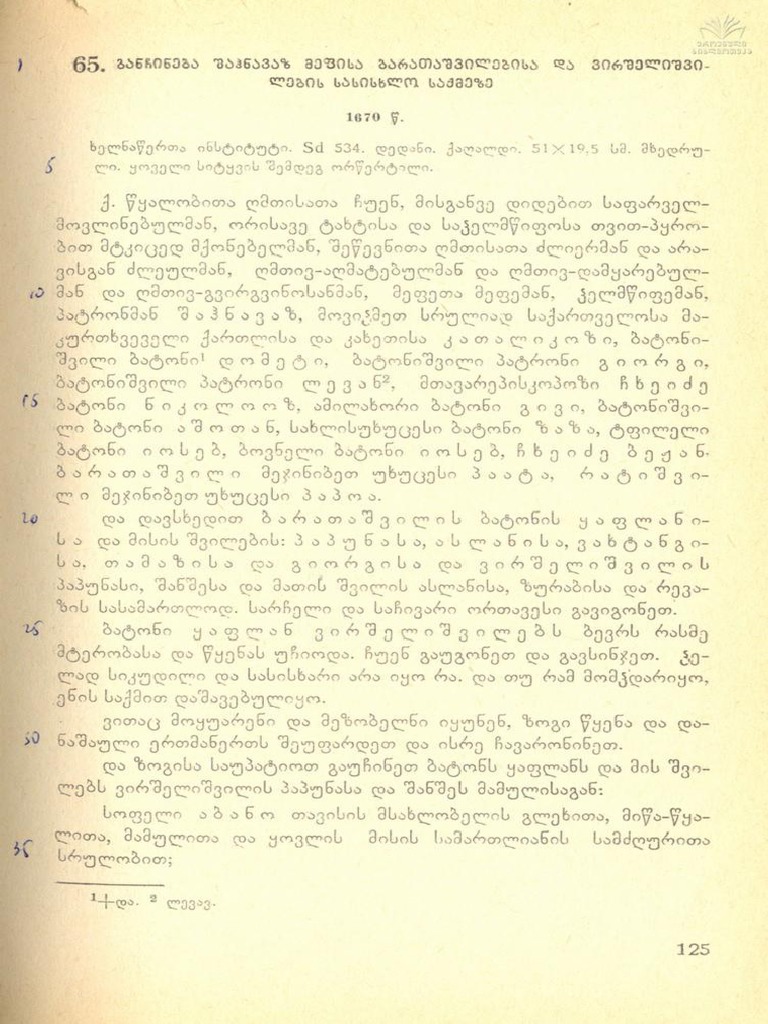 ეროვნული
ბიბლიოთეკა
1
65. განჩინება შაჰნავაზ მეფისა ბარათაშვილებისა და ვირშელიშვი-
ლების სასისხლო საქმეზე
1670 წ.
ხელნაწერთა ინსტიტუტი. Sd 534. დედანი. ქაღალდი. 51×19,5 სმ. მხედრუ-
5 ლი. ყოველი სიტყვის შემდეგ ორწერტილი.
ქ. წყალობითა ღმთისათა ჩუენ, მისგანვე დიდებით საფარველ-
მოვლინებულმან, ორისავე ტახტისა და საჴელმწიფოსა თვით-პყრო-
ბით მტკიცედ მქონებელმან, შეწევნითა ღმთისათა ძლიერმან და არა-
ვისგან ძლეულმან, ღმთივ-აღმატებულმან და ღმთივ-დამყარებულ-
10 მან და ღმთივ-გვირგვინოსანმან, მეფეთა მეფემან, ჴელმწიფემან,
პატრონმან შაჰნავაზ, მოვიჴმეთ სრულიად საქართველოსა მა-
კურთხეველი ქართლისა და კახეთისა კათალიკოზი, ბატონი-
შვილი ბატონი¹ დომეტი, ბატონიშვილი პატრონი გიორგი,
ბატონიშვილი პატრონი ლევან², მთავარეპისკოპოზი ჩხეიძე
15 ბატონი ნიკოლოოზ, ამილახორი ბატონი გივი, ბატონიშვი-
ლი ბატონი აშოთან, სახლისუხუცესი ბატონი ზაზა, ტფილელი
ბატონი იოსებ, ბოვნელი ბატონი იოსებ, ჩხეიძე ბეჟან.
ბარათაშვილი მეჯინიბეთ უხუცესი პაატა, რატიშვი-
ლი მეჯინიბეთ უხუცესი პაპოა.
20 და დავსხედით ბარათაშვილის ბატონის ყაფლანი-
სა და მისის შვილების: პაპუნასა, ასლანისა, ვახტანგი-
სა, თამაზისა და გიორგისა და ვირშელიშვილის
პაპუნასი, შანშესა და მათის შვილის ასლანისა, ზურაბისა და რევა-
ზის სასამართლოდ. სარჩელი და საჩივარი ორთავესი გავიგონეთ.
25 ბატონი ყაფლან ვირშელიშვილებს ბევრს რასმე
მტერობასა და წყენას უჩიოდა. ჩუენ გაუგონეთ და გავსინჯეთ. ჴე-
ლად სიკუდილი და სასისხარი არა იყო რა. და თუ რამ მომჴდარიყო,
ენის საქმით დაშავებულიყო.
ვითაც მოყუარენი და მეზობელნი იყუნენ, ზოგი წყენა და და-
30 ნაშაული ერთმანერთს შეუფარდეთ და ისრე ჩავარონინეთ.
და ზოგისა საუპატიოთ გაუჩინეთ ბატონს ყაფლანს და მის შვი-
ლებს ვირშელიშვილის პაპუნასა და შანშეს მამულისაგან:
სოფელი აბანო თავისის მსახლობელის გლეხითა, მიწა-წყა-
ლითა, მამულითა და ყოვლის მისის სამართლიანის სამძღურითა
35 სრულობით;
¹+და. ² ლევავ.
125